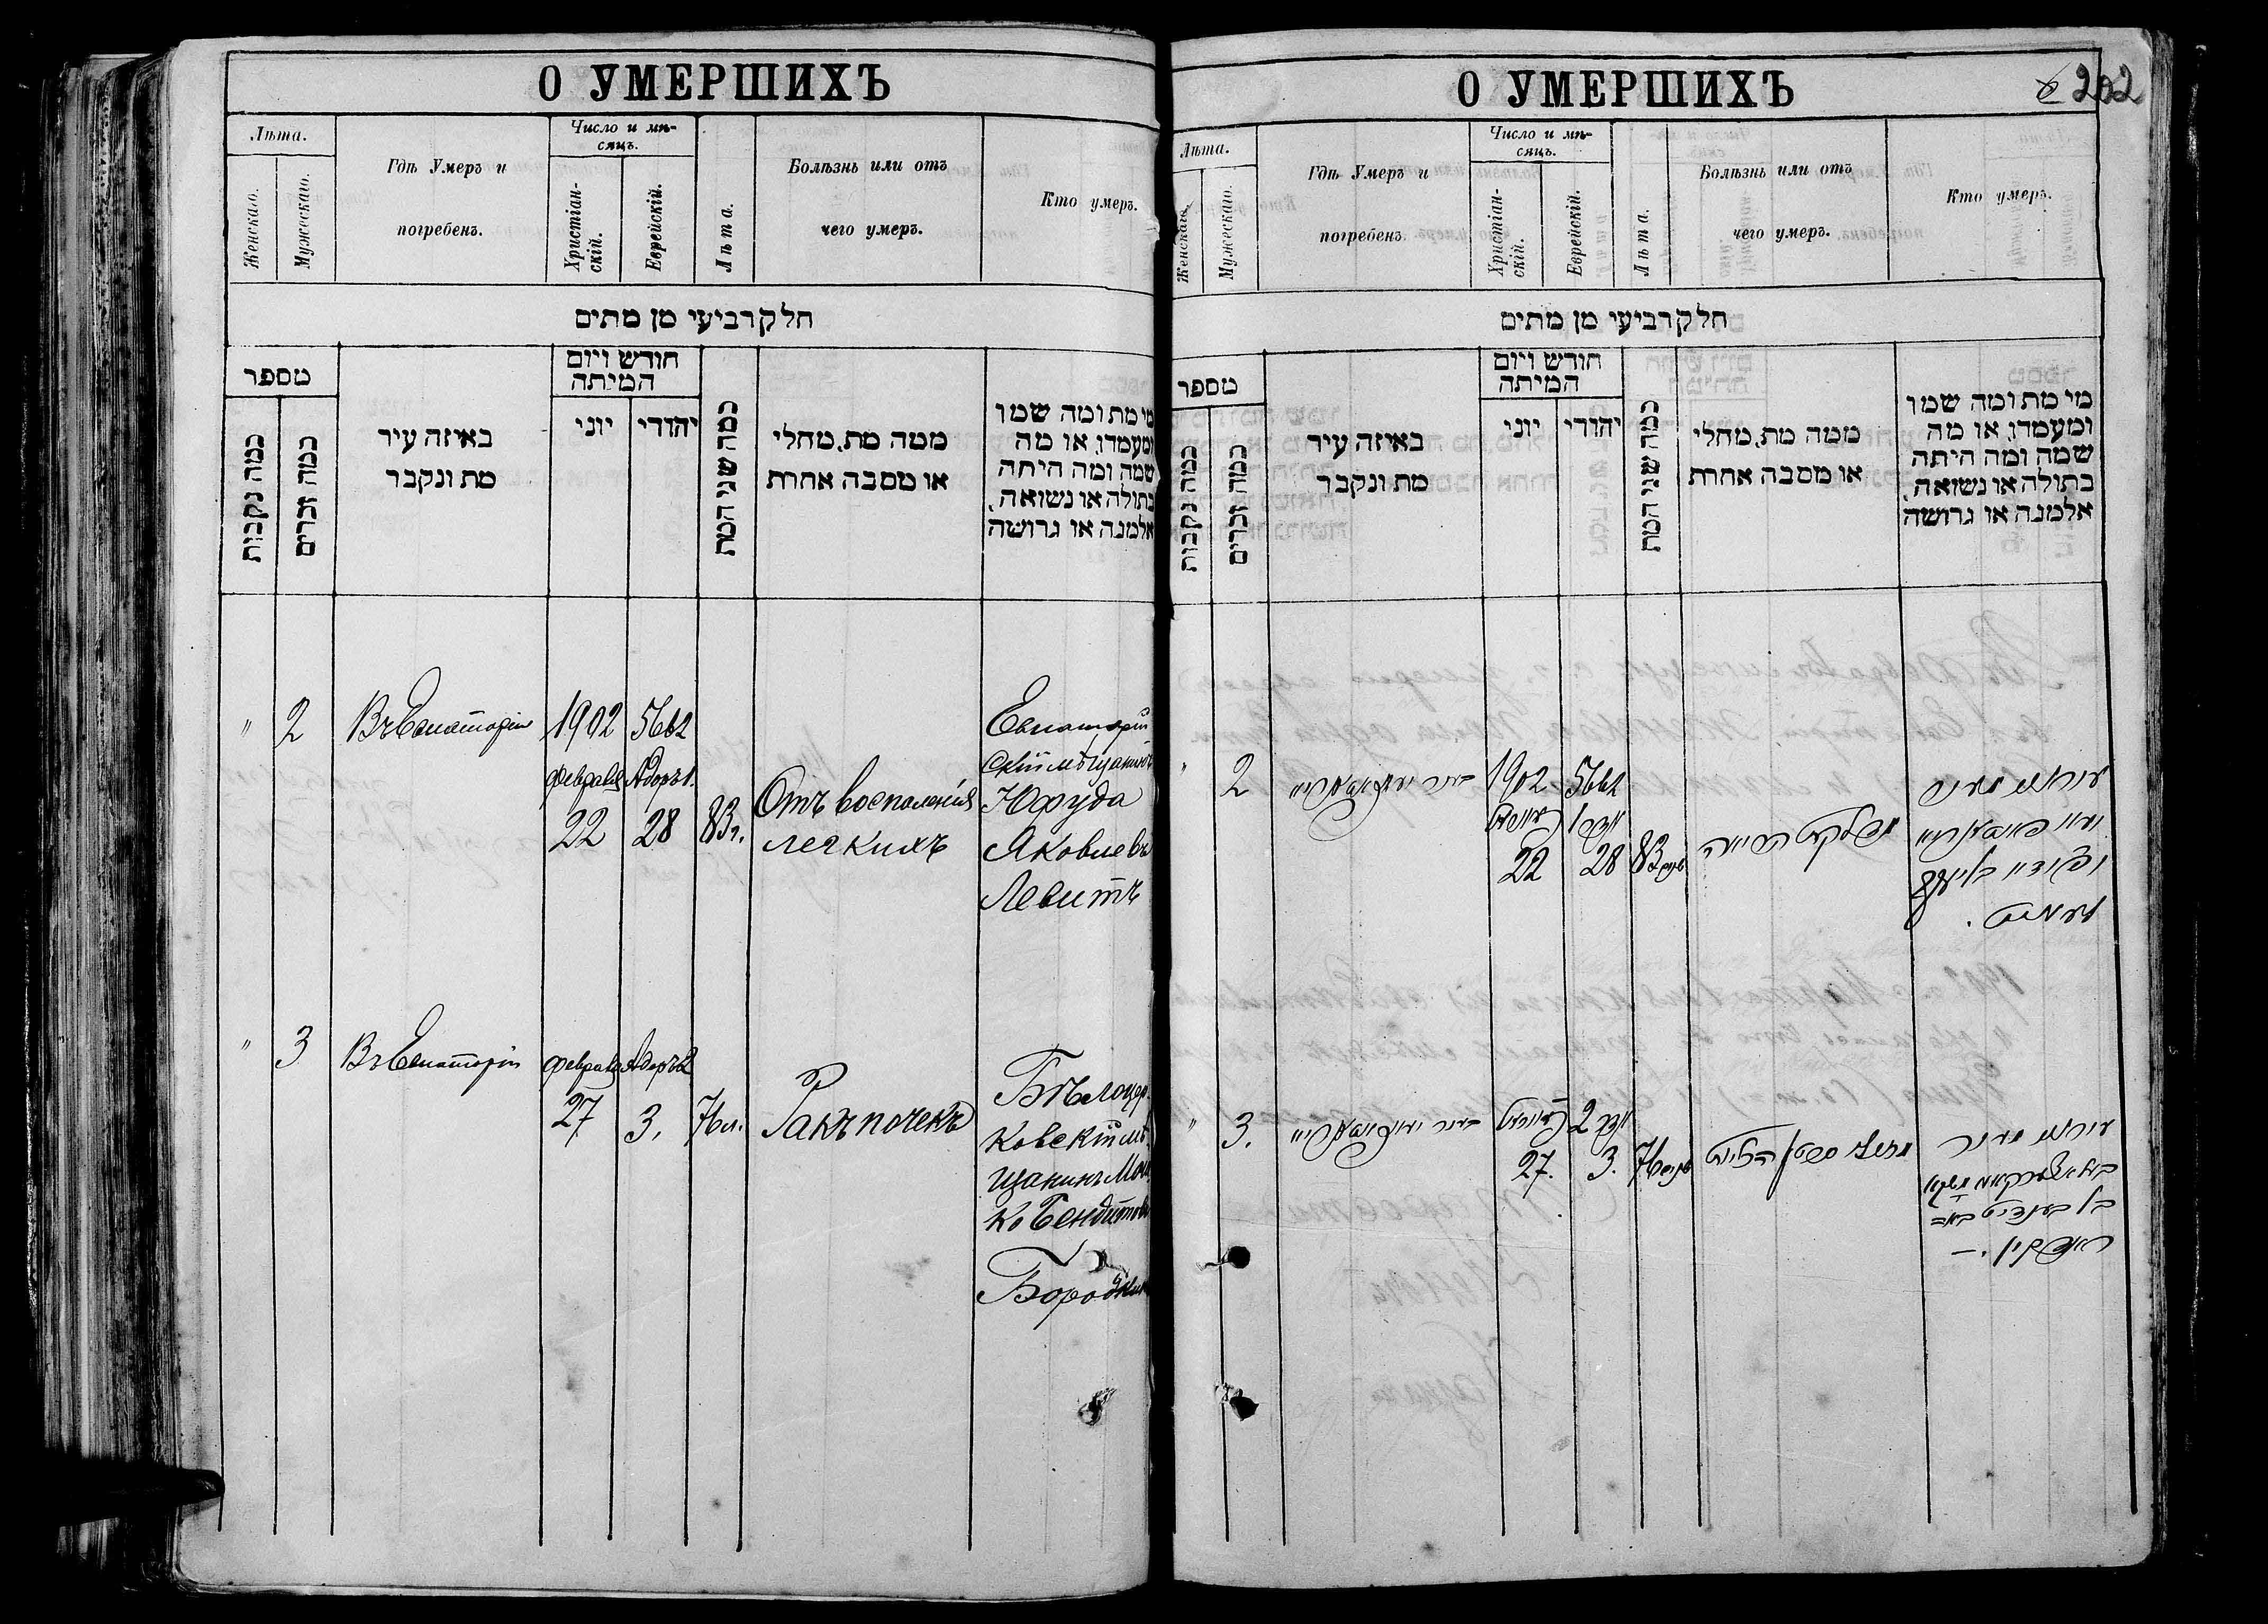 О УМЕРШИХЪ
Лѣта.
Женскаго.
Мужескаго.
Гдѣ Умеръ и
погребенъ.
Число и мѣ-
сяцъ.
Христіан-
скій.
Еврейскій.
Лѣта.
Болѣзнь или отъ
чего умеръ.
Кто умеръ.
חלק רביעי מן מתים
מספר
כמה נקבות
כמה זכרים
באיזה עיר
מת ונקבר
חודש ויום
המיתה
יוני
יהודי
כמה שני המת
ממה מת, מחלי
או מסבה אחרת
מי מת ומה שמו
ומעמדו, או מה
שמה ומה היתה
בתולה או נשואה,
אלמנה או גרושה
" 2 Въ Евпаторіи 1902 5662
февраля Адоръ 1.
22 28 83 г.
Отъ воспаленія
легкихъ
Евпаторій
скій мѣщанинъ
Юфуда
Яковлевъ
Левитъ
" 3 Въ Евпаторіи февраля Адоръ 2
27 3. 76 л. Ракъ почекъ
Бѣлоцер-
ковскій мѣ-
щанинъ Мош
ко Бендитовъ
Бородкин
О УМЕРШИХЪ
202
Лѣта.
Женскаго.
Мужескаго.
Гдѣ Умеръ и
погребенъ.
Число и мѣ-
сяцъ.
Христіан-
скій.
Еврейскій.
Лѣта.
Болѣзнь или отъ
чего умеръ.
Кто умеръ.
חלק רביעי מן מתים
מספר
כמה נקבות
כמה זכרים
באיזה עיר
מת ונקבר
חודש ויום
המיתה
יוני
יהודי
כמה שני המת
ממה מת, מחלי
או מסבה אחרת
מי מת ומה שמו
ומעמדו, או מה
שמה ומה היתה
בתולה או נשואה,
אלמנה או גרושה
" 2 1902 5662
22 28 83
" 3. 2
27. 3. 76